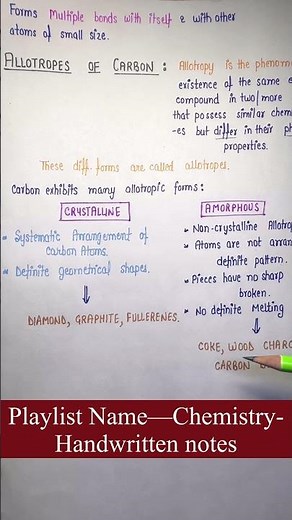 Forms Multiple bonds with itself & with other
atoms of small size.
ALLOTROPES OF CARBON :
Allotropy is the
existence of the same
compound in two/more
that possess similar
-es but differ in their
properties.
These diff. forms are called allotropes.
Carbon exhibits many allotropic forms:
CRYSTALLINE
Systematic Arrangement of
Carbon Atoms.
Definite geometrical shapes.
DIAMOND, GRAPHITE, FULLERENES.
AMORPHOUS
Non-crystalline
Atoms are not
definite pattern.
Pieces have no sharp
broken.
No definite Melting
COKE, WOOD
CARBON
Playlist Name—Chemistry-
Handwritten notes